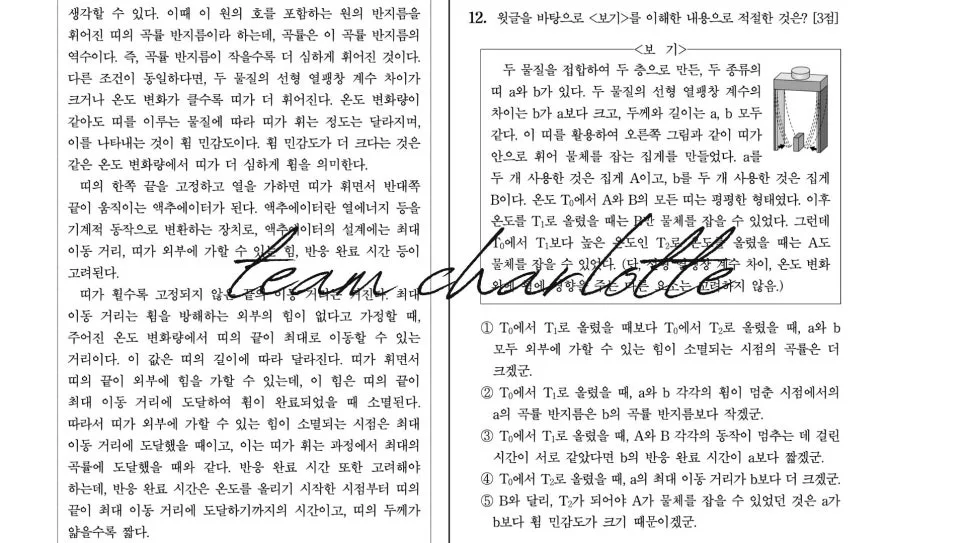 생각할 수 있다. 이때 이 원의 호를 포함하는 원의 반지름을
휘어진 띠의 곡률 반지름이라 하는데, 곡률은 이 곡률 반지름의
역수이다. 즉, 곡률 반지름이 작을수록 더 심하게 휘어진 것이다.
다른 조건이 동일하다면, 두 물질의 선형 열팽창 계수 차이가
크거나 온도 변화가 클수록 띠가 더 휘어진다. 온도 변화량이
같아도 띠를 이루는 물질에 따라 띠가 휘는 정도는 달라지며,
이를 나타내는 것이 휨 민감도이다. 휨 민감도가 더 크다는 것은
같은 온도 변화량에서 띠가 더 심하게 휨을 의미한다.
띠의 한쪽 끝을 고정하고 열을 가하면 띠가 휘면서 반대쪽
끝이 움직이는 액추에이터가 된다. 액추에이터란 열에너지 등을
기계적 동작으로 변환하는 장치로, 액추에이터의 설계에는 최대
이동 거리, 띠가 외부에 가할 수 있는 힘, 반응 완료 시간 등이
고려된다.
띠가 휠수록 고정되지 않은 끝의 이동 거리는 커진다. 최대
이동 거리는 휨을 방해하는 외부의 힘이 없다고 가정할 때,
주어진 온도 변화량에서 띠의 끝이 최대로 이동할 수 있는
거리이다. 이 값은 띠의 길이에 따라 달라진다. 띠가 휘면서
띠의 끝이 외부에 힘을 가할 수 있는데, 이 힘은 띠의 끝이
최대 이동 거리에 도달하여 휨이 완료되었을 때 소멸된다.
따라서 띠가 외부에 가할 수 있는 힘이 소멸되는 시점은 최대
이동 거리에 도달했을 때이고, 이는 띠가 휘는 과정에서 최대의
곡률에 도달했을 때와 같다. 반응 완료 시간 또한 고려해야
하는데, 반응 완료 시간은 온도를 올리기 시작한 시점부터 띠의
끝이 최대 이동 거리에 도달하기까지의 시간이고, 띠의 두께가
얇을수록 짧다.
12. 윗글을 바탕으로 <보기>를 이해한 내용으로 적절한 것은? [3점]
<보 기>
두 물질을 접합하여 두 층으로 만든, 두 종류의
띠 a와 b가 있다. 두 물질의 선형 열팽창 계수의
차이는 b가 a보다 크고, 두께와 길이는 a, b 모두
같다. 이 띠를 활용하여 오른쪽 그림과 같이 띠가
안으로 휘어 물체를 잡는 집게를 만들었다. a를
두 개 사용한 것은 집게 A이고, b를 두 개 사용한 것은 집게
B이다. 온도 T₀에서 A와 B의 모든 띠는 평평한 형태였다. 이후
온도를 T₁로 올렸을 때는 B만 물체를 잡을 수 있었다. 그런데
T₀에서 T₁보다 높은 온도인 T₂로 온도를 올렸을 때는 A도
물체를 잡을 수 있었다. (단, 선형 열팽창 계수 차이, 온도 변화
외에 휨에 영향을 주는 다른 요소는 고려하지 않음.)
① T₀에서 T₁로 올렸을 때보다 T₀에서 T₂로 올렸을 때, a와 b
모두 외부에 가할 수 있는 힘이 소멸되는 시점의 곡률은 더
크겠군.
② T₀에서 T₁로 올렸을 때, a와 b 각각의 휨이 멈춘 시점에서의
a의 곡률 반지름은 b의 곡률 반지름보다 작겠군.
③ T₀에서 T₁로 올렸을 때, A와 B 각각의 동작이 멈추는 데 걸린
시간이 서로 같았다면 b의 반응 완료 시간이 a보다 짧겠군.
④ T₀에서 T₂로 올렸을 때, a의 최대 이동 거리가 b보다 더 크겠군.
⑤ B와 달리, T₂가 되어야 A가 물체를 잡을 수 있었던 것은 a가
b보다 휨 민감도가 크기 때문이겠군.
team charlotte